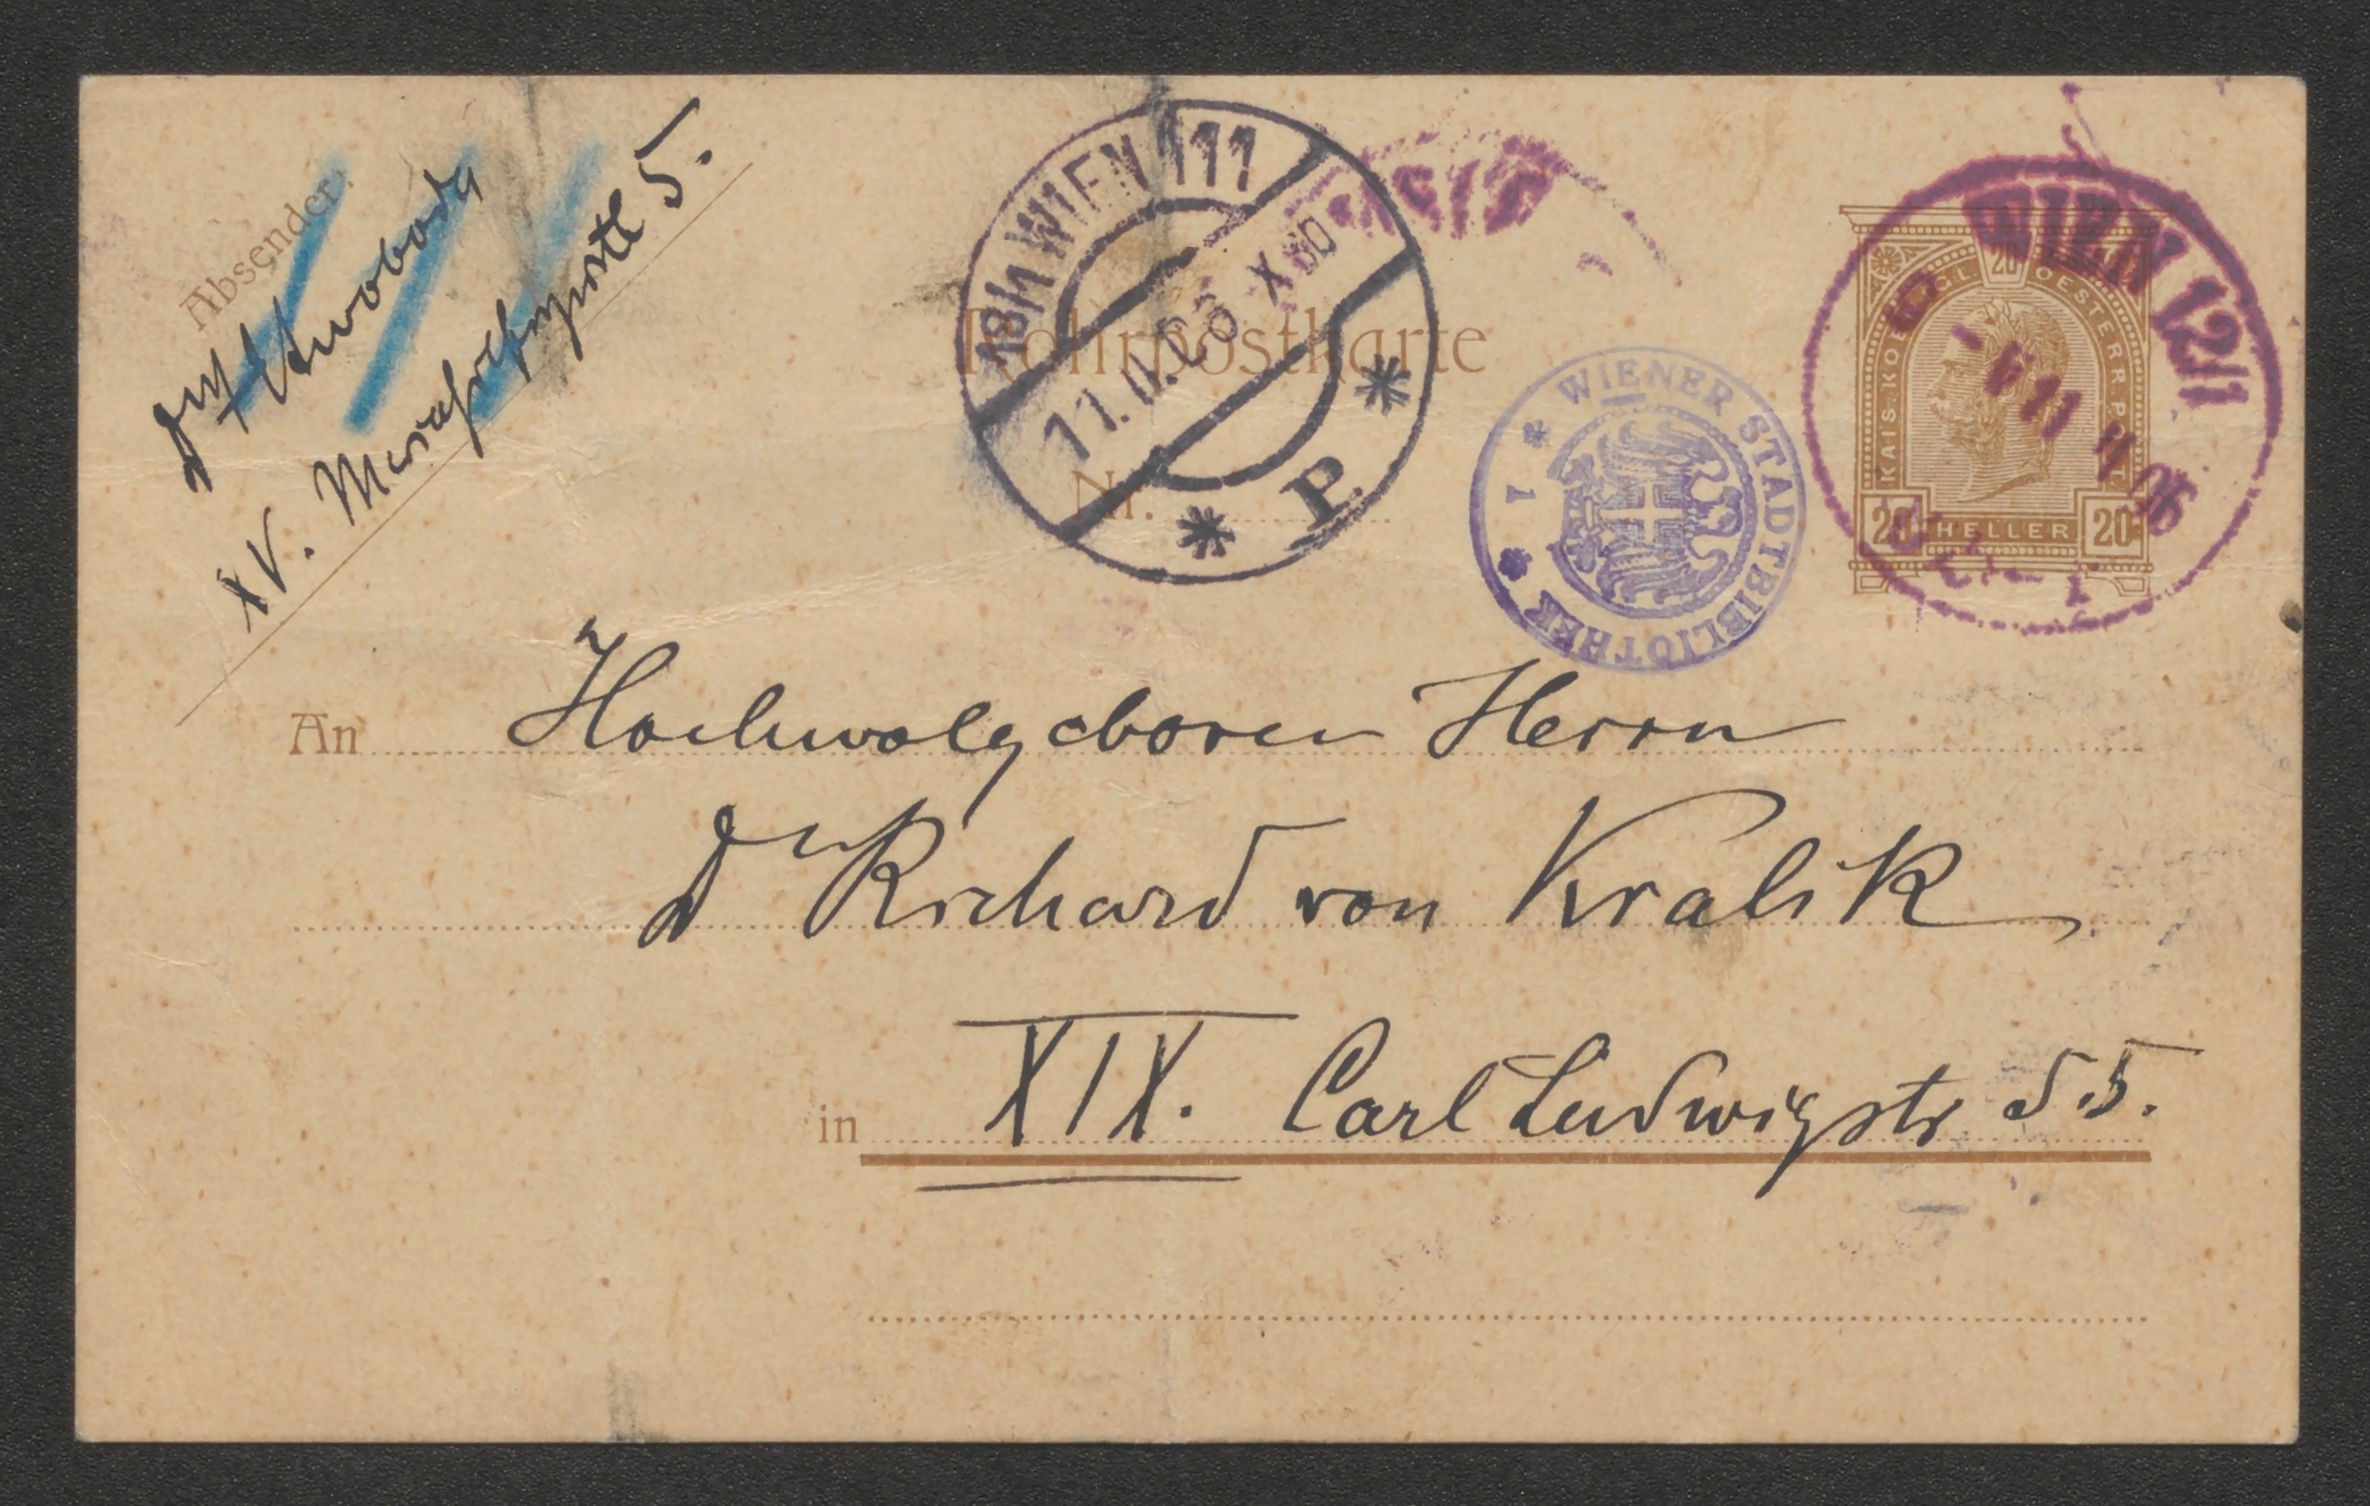 Absender.
Swoboda
XV. Mariahilferstr 5.
18/1 WIEN 111
11.II.06 X 50
* P *
Rohrpostkarte
Nr.
* WIENER STADTBIBLIOTHEK * 1
WIEN 12/1
11 II 06
KAIS. KOENIGL. 20 OESTERR. POST
20 HELLER 20
An Hochwolgeboren Herrn
Dr Richard von Kralik
in XIX. Carl Ludwigstr 55.